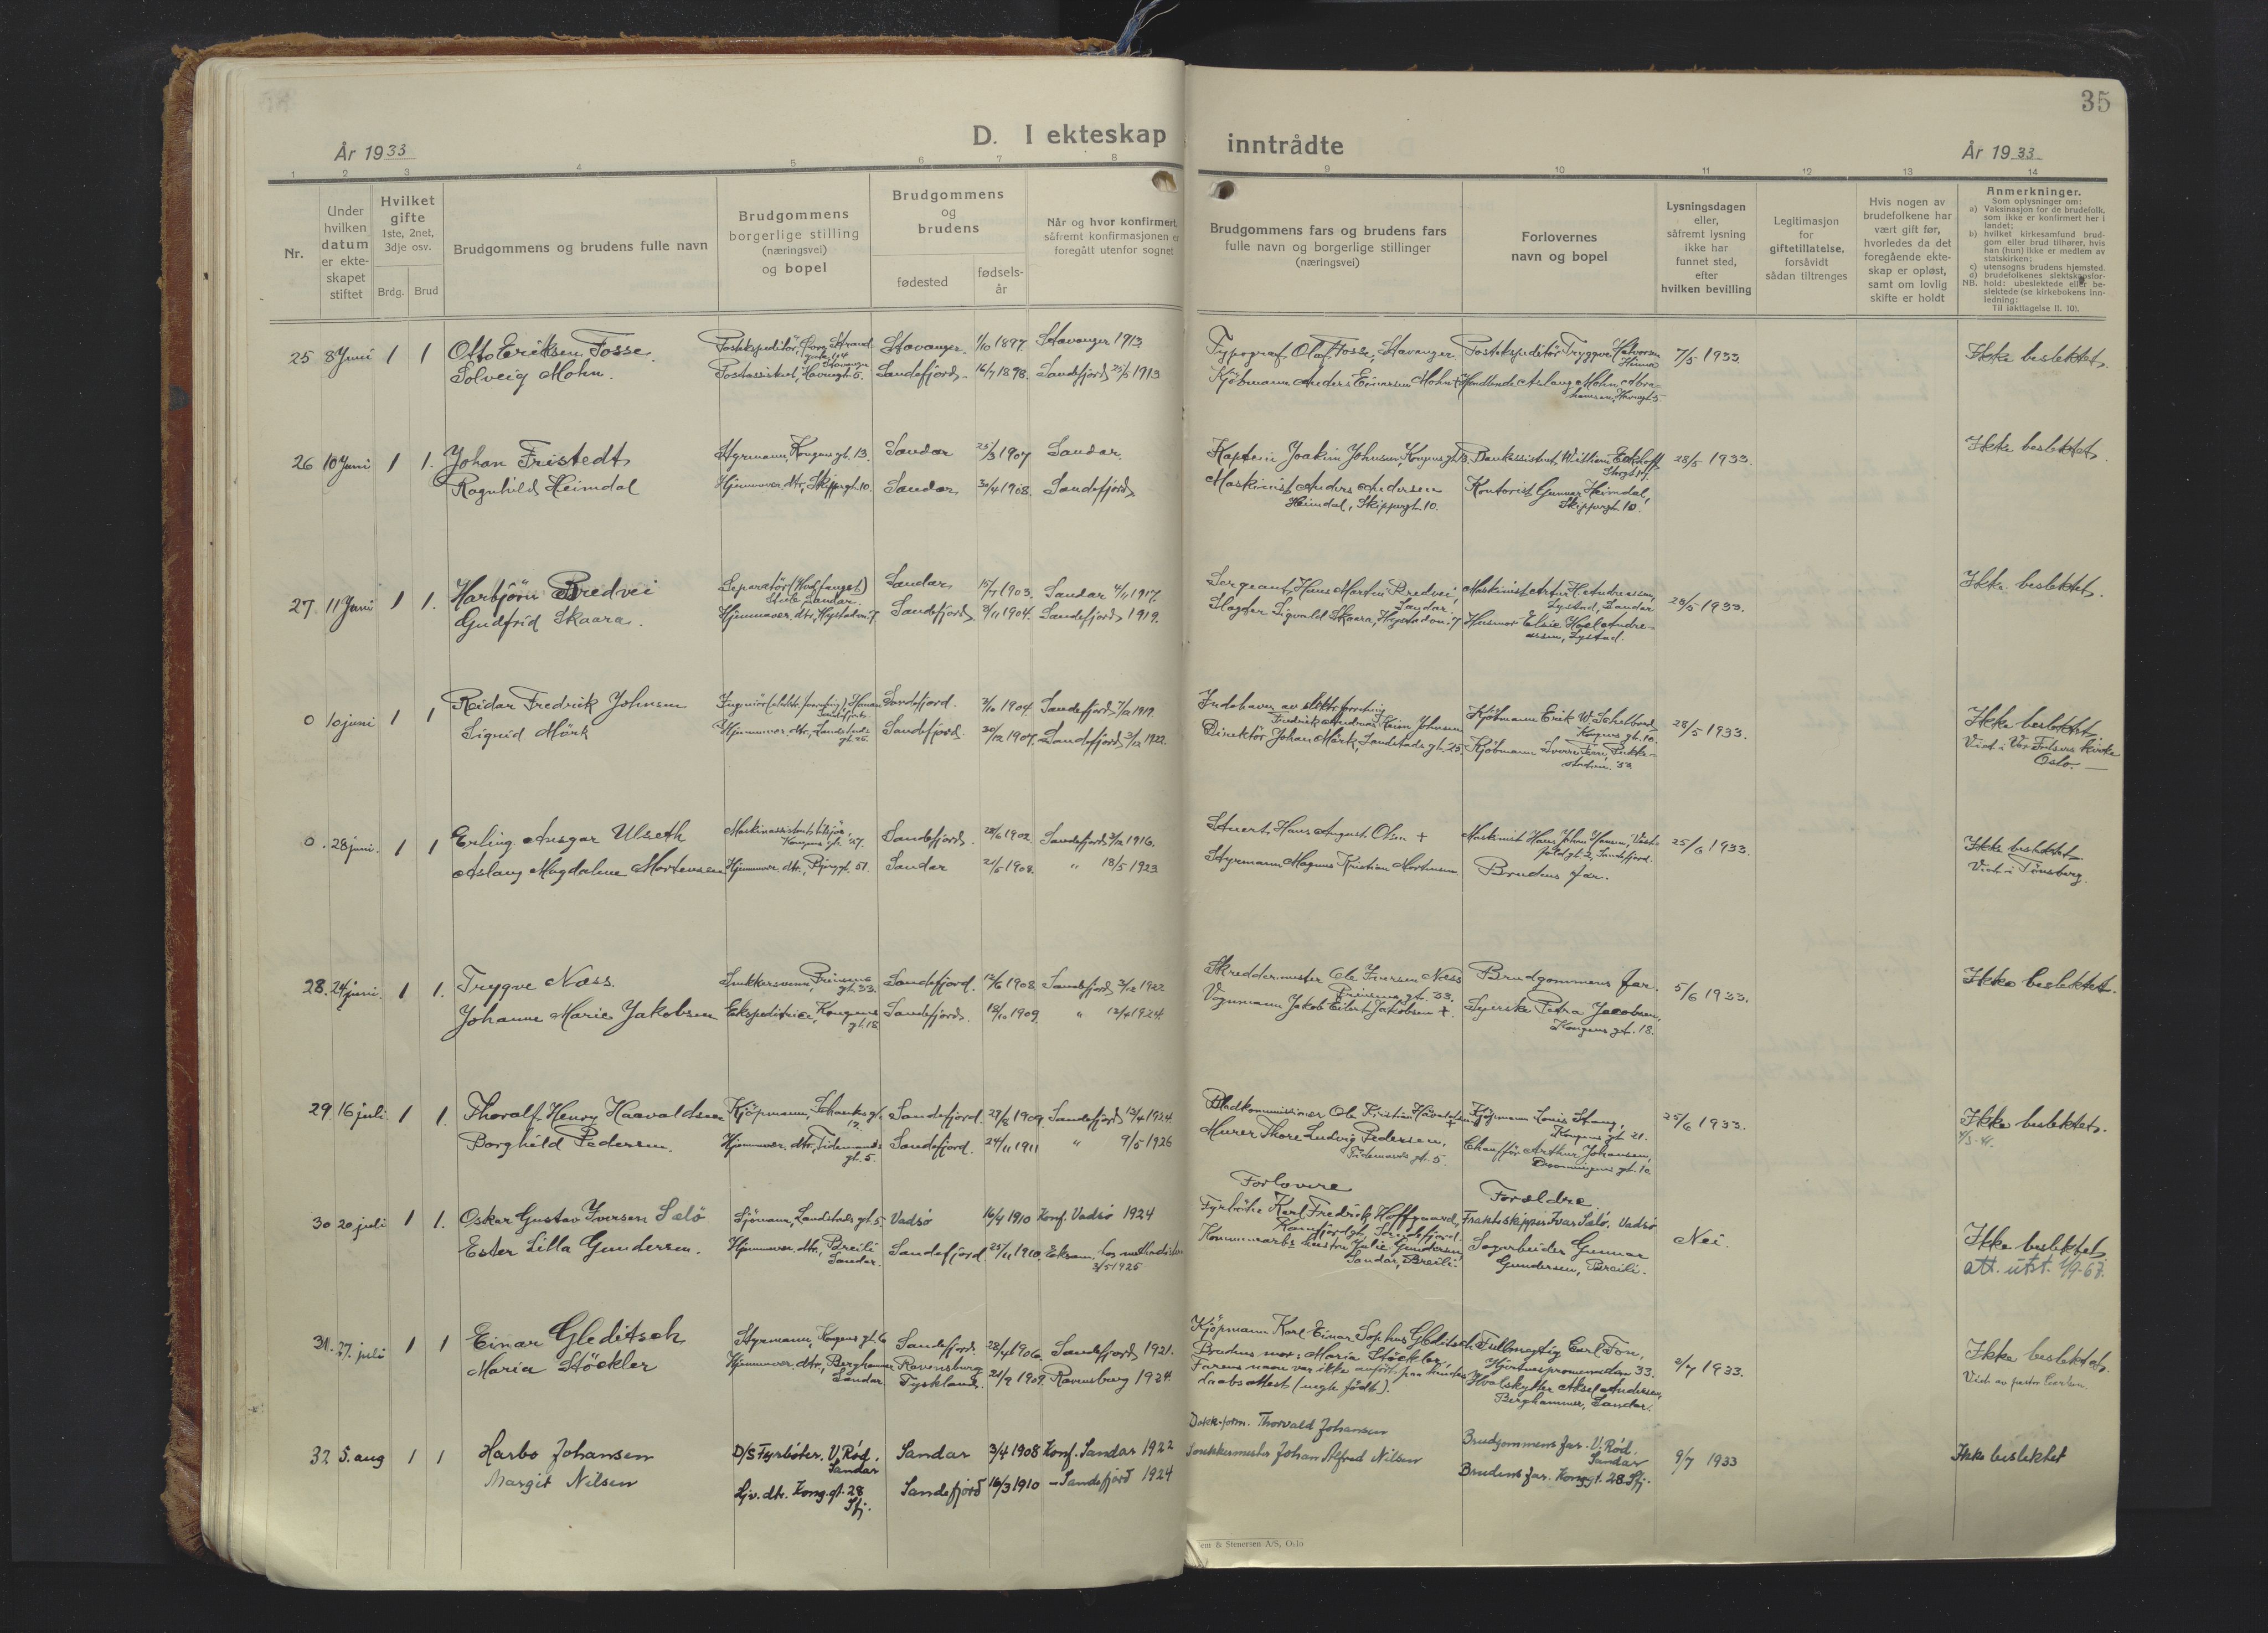 35
D. I ekteskap inntrådte
År 1933
År 1933
1 2 3 4 5 6 7 8 9 10 11 12 13 14
Nr.
Under hvilken datum er ekteskapet stiftet
Hvilket gifte 1ste, 2net, 3dje osv.
Brdg. Brud
Brudgommens og brudens fulle navn
Brudgommens borgerlige stilling (næringsvei) og bopel
Brudgommens og brudens
fødested
fødselsår
Når og hvor konfirmert, såfremt konfirmasjonen er foregått utenfor sognet
Brudgommens fars og brudens fars fulle navn og borgerlige stillinger (næringsvei)
Forlovernes navn og bopel
Lysningsdagen eller, såfremt lysning ikke har funnet sted, efter hvilken bevilling
Legitimasjon for giftetillatelse, forsåvidt sådan tiltrenges
Hvis nogen av brudefolkene har vært gift før, hvorledes da det foregående ekteskap er opløst, samt om lovlig skifte er holdt
Anmerkninger.
Som oplysninger om:
a) Vaksinasjon for de brudefolk, som ikke er konfirmert her i landet;
b) hvilket kirkesamfund brudgom eller brud tilhører, hvis han (hun) ikke er medlem av statskirken;
c) utensogns brudens hjemsted.
d) brudefolkenes slektskapsforhold: ubeslektede eller beslektede (se kirkebokens innledning:
NB.
Til iakttagelse II. 10).
25 8 Juni 1 1 Otto Eriksen Fosse. Postekspeditör, Stavanger. 1/10 1897 Stavanger 1913 Typograf Olaf Fosse, Stavanger. Postekspeditör Tryggve Halvorsen Hinna 7/5 1933 Ikke beslektet.
Solveig Mohn. Postassistent, Havnegt. 5. Sandefjord. 16/7 1898. Sandefjord 25/5 1913 Kjöbmann Anders Einarsen Mohn + Handlende Aslaug Mohn Abrahamsen, Havnegt. 5
26 10 Juni 1 1. Johan Fristedt Styrmann, Kongens gt. 13. Sandar 25/3 1907 Sandar. Kaptein Joakim Johnsen, Kongens gt. 13. Bankassistent William Eckhoff, Storgt. 28/5 1933. Ikke beslektet.
Ragnhild Heimdal Hjemmevær. dtr., Skippergt. 10. Sandar 30/4 1908. Sandefjord Maskinist Anders Andersen Heimdal, Skippergt. 10. Kontorist Gunnar Heimdal, Skippergt. 10.
27. 11 Juni 1 1. Harbjörn Bredvei Separatör (Hvalfangst) Sandar. Sandar 15/7 1903. Sandar 4/11 1917. Sergeant Hans Martin Bredvei, Sandar. Maskinist Artur H. Andreassen, Lystad, Sandar 28/5 1933. Ikke beslektet.
Gudfrid Skaara. Hjemmevær. dtr., Höystadvn. 7. Sandefjord 3/11 1904. Sandefjord 1919. Slagter Sigvald Skaara, Höystadvn. 7 Husmor Elsie Höel Andreassen, Lystad.
0 10 juni 1 1 Reidar Fredrik Johnsen Sandefjord. 2/10 1904. Sandefjord 1919. Indehaver av elektr. forretning Fredrik Johnsen Kjöbmann Erik W. Kongens gt. 10. 28/5 1933. Ikke beslektet.
Sigrid Mörk Hjemmevær. dtr., Landstads gt. 25. Sandefjord. 30/12 1907. Sandefjord 3/12 1922. Direktör Johan Mörk, Landstads gt. 25. Kjöbmann Viet i Vor Frelsers kirke Oslo.
0. 28 juni. 1 1 Erling Ansgar Ulseth Maskinassistent, Kongens gt. 47. Sandefjord. 28/6 1902. Sandefjord 1916. Stuert Hans August Olsen + Maskinist Hans Johan Hansen, Sandefjord. 25/6 1933. Ikke beslektet
Aslaug Magdalene Mortensen Hjemmevær. dtr., Bjerggt. 51. Sandar 21/5 1908. " 18/5 1923 Styrmann Magnus Kristian Mortensen Brudens far. Viet i Tönsberg.
28. 24 juni. 1 1. Trygve Næss. Snekkersvenn, Prinsens gt. 33. Sandefjord. 12/6 1908 Sandefjord 3/12 1922 Skreddermester Ole Iversen Næss Prinsens gt. 33. Brudgommens far. 5/6 1933. Ikke beslektet.
Johanne Marie Jakobsen Ekspeditrice, Kongens gt. 18 Sandefjord. 12/10 1909. " 13/4 1924. Vognmann Jakob Eilert Jakobsen +. Syerske Petra Jacobsen, Kongens gt. 18.
29. 16 juli. 1 1. Thoralf Henry Haavaldsen Kjöpmann, Schanks gt. 12. Sandefjord. 29/8 1909. Sandefjord 13/4 1924. Ole Kristian Kjöpmann Louis Stang, Kongens gt. 21. 25/6 1933. Ikke beslektet.
Borghild Pedersen. Hjemmevær. dtr., Tidemands gt. 5. Sandefjord. 24/11 1911 " 9/5 1926 Murer Thore Ludvig Pedersen, Tidemands gt. 5. Chauffför Arthur Johansen, Dronningens gt. 10
Forlovere Forældre
30 20 juli 1 1. Oskar Gustav Iversen Salö Sjömann, Landstads gt. 5 Vadsö 16/4 1910 Konf. Vadsö 1924 Fyrböter Karl Fredrik Hoffgaard, Sandefjord. Fraktskipper Ivar Salö, Vadsö Nei. Ikke beslektet
Ester Lilla Gundersen. Hjemmevær. dtr., Breili Sandar. Sandefjord. 25/11 1910. Eksam. hos methodisten 3/5 1925 Julie Gundersen, Sandar, Breili. Sagarbeider Gunnar Gundersen, Breili. att. utst. 1/9-67.
31. 27. juli 1 1 Einar Gleditsch Styrmann, Kongens gt. 6 Sandefjord. 28/4 1906. Sandefjord 1921. Kjöpmann Karl Einar Sophus Gleditsch Fullmegtig Carl Fon, Hjertnespromenaden 33. 2/7 1933. Ikke beslektet.
Maria Stöckler Hjemmevær. dtr., Berghammer Sandar. Ravensburg Tyskland. 21/2 1909. Ravensburg 1924. Brudens mor: Maria Stöckler. Farens navn var ikke anfört paa hendes daabsattest (uegte födt). Hvalskytter Aksel Andersen, Berghammer, Sandar. Viet av pastor
32 5. aug 1 1 Harbo Johansen D/S Fyrböter. V. Röd, Sandar Sandar 3/4 1908 Konf. Sandar 1922 Dokk-form. Thorvald Johansen Brudgommens far. V. Röd, Sandar 9/7 1933 Ikke beslektet
Margit Nilsen Hjv. dtr. Kong. gt. 28 Sfj. Sandefjord 16/3 1910 - Sandefjord 1924 Snekkermester Johan Alfred Nilsen Brudens far. Kong. gt. 28 Sfj.
em & Stenersen A/S, Oslo